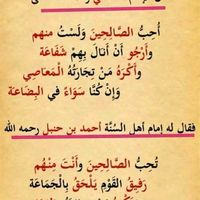 أُحِبُّ الصَّالِحِينَ وَلَسْتُ منهم
وأَرْجُو أَنْ أَنَالَ بِهِمْ شَفَاعَة
وَأَكْرَهُ مَنْ تِجَارَتُهُ الْمَعَاصِي
وَإِنْ كُنَّا سَوَاءً فِي البِضَاعَة
فقال له إمام أهل السُّنَّة أحمد بن حنبل رحمه الله
تُحِبُّ الصَّالِحِينَ وَأَنْتَ مِنْهُم
رَفِيقُ القَوْمِ يَلْحَقُ بِالْجَمَاعَة